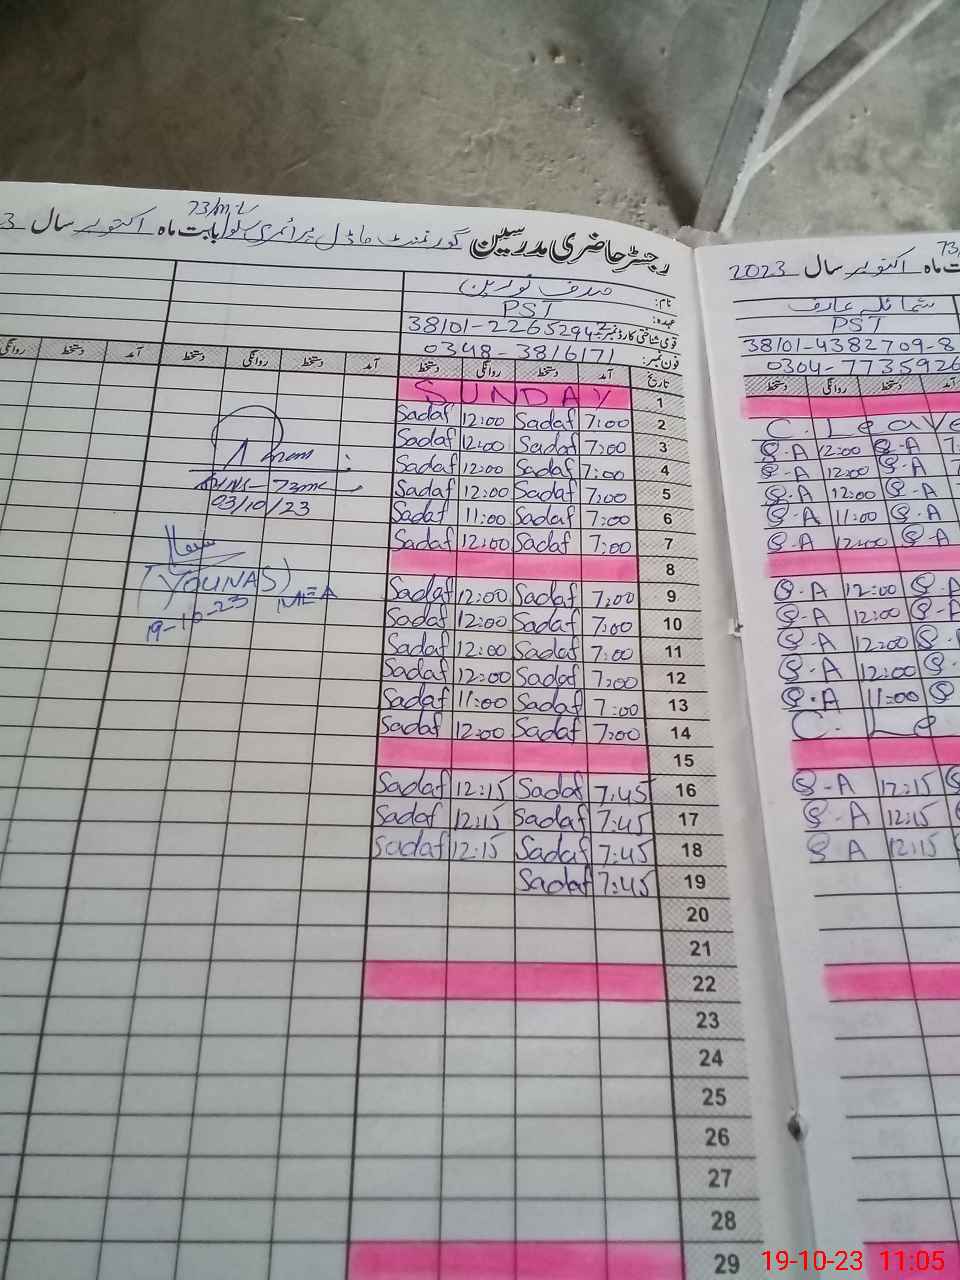 رجسٹر حاضری مدرسین گورنمنٹ ماڈل پرائمری سکول بابت ماہ اکتوبر سال 3
73/ML
نام: صدف نورین
عہدہ: PST
قومی شناختی کارڈ نمبر 38101-2265294
فون نمبر: 0348-3816171
تاریخ آمد دستخط روانگی دستخط آمد دستخط روانگی دستخط آمد دستخط روانگی
1 SUNDAY
2 7:00 Sadaf 12:00 Sadaf
3 7:00 Sadaf 12:00 Sadaf
4 7:00 Sadaf 12:00 Sadaf
5 7:00 Sadaf 12:00 Sadaf
6 7:00 Sadaf 11:00 Sadaf
7 7:00 Sadaf 12:00 Sadaf
8
9 7:00 Sadaf 12:00 Sadaf
10 7:00 Sadaf 12:00 Sadaf
11 7:00 Sadaf 12:00 Sadaf
12 7:00 Sadaf 12:00 Sadaf
13 7:00 Sadaf 11:00 Sadaf
14 7:00 Sadaf 12:00 Sadaf
15
16 7:45 Sadaf 12:15 Sadaf
17 7:45 Sadaf 12:15 Sadaf
18 7:45 Sadaf 12:15 Sadaf
19 7:45 Sadaf
20
21
22
23
24
25
26
27
28
29
03/10/23
(YOUNAS)
MEA
19-10-23
73/
ماہ اکتوبر سال 2023
شمائلہ عارف
PST
38101-4382709-8
0304-7735926
آمد دستخط روانگی دستخط
C. Leave
7: S-A 12:00 S-A
7 S-A 12:00 S-A
S-A 12:00 S-A
S-A 11:00 S-A
S-A 12:00 S-A
S-A 12:00 S-A
S-A 12:00 S-A
S-A 12:00 S-A
12:00 S-A
11:00 S-A
C. Le
12:15 S-A
12:15 S-A
12:15 S-A
19-10-23 11:05